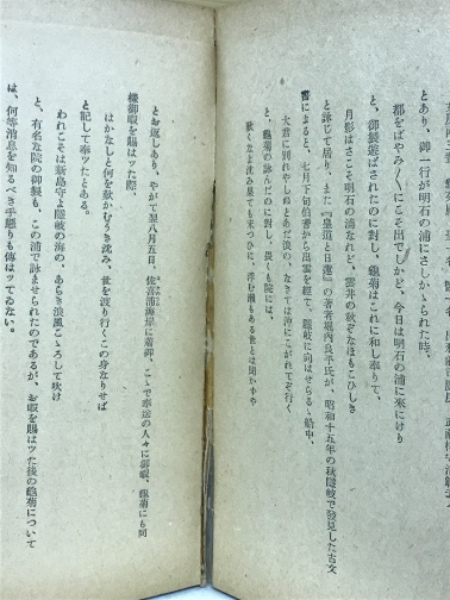 とあり、御一行が明石の浦にさしかゝられた時、
都をばやみ〳〵にこそ出でしかど、今日は明石の浦に来にけり
と、御製遊ばされたのに對し、龜菊はこれに和し奉りて、
月影はさこそ明石の浦なれど、雲井の秋ぞなほもこひしき
と詠じて居り、また『皇道と日蓮』の著者堀内良平氏が、昭和十五年の秋隱岐で發見した古文
書によると、七月下旬伯耆から出雲を經て、隱岐に向はせらるゝ船中、
と、龜菊の詠んだのに對し、畏くも院には、
歎くなよ沈み果ても來つひに、浮む瀨もある世とは聞かずや
とお返しあり、やがて翌八月五日
海岸に着御、こゝで
の人々に御暇、龜菊にも同
樣御暇を賜はッた際、
はかなしと何を歎かむうき沈み、世を渡り行くこの身なりせば
と記して奉ッたとある。
われこそは新島守よ隱岐の海の、あらき浪風こゝろして吹け
と、有名な院の御製も、この浦で詠ませられたのであるが、お暇を賜はッた後の龜菊について
は、何等消息を知るべき手懸りも傳はッてゐない。